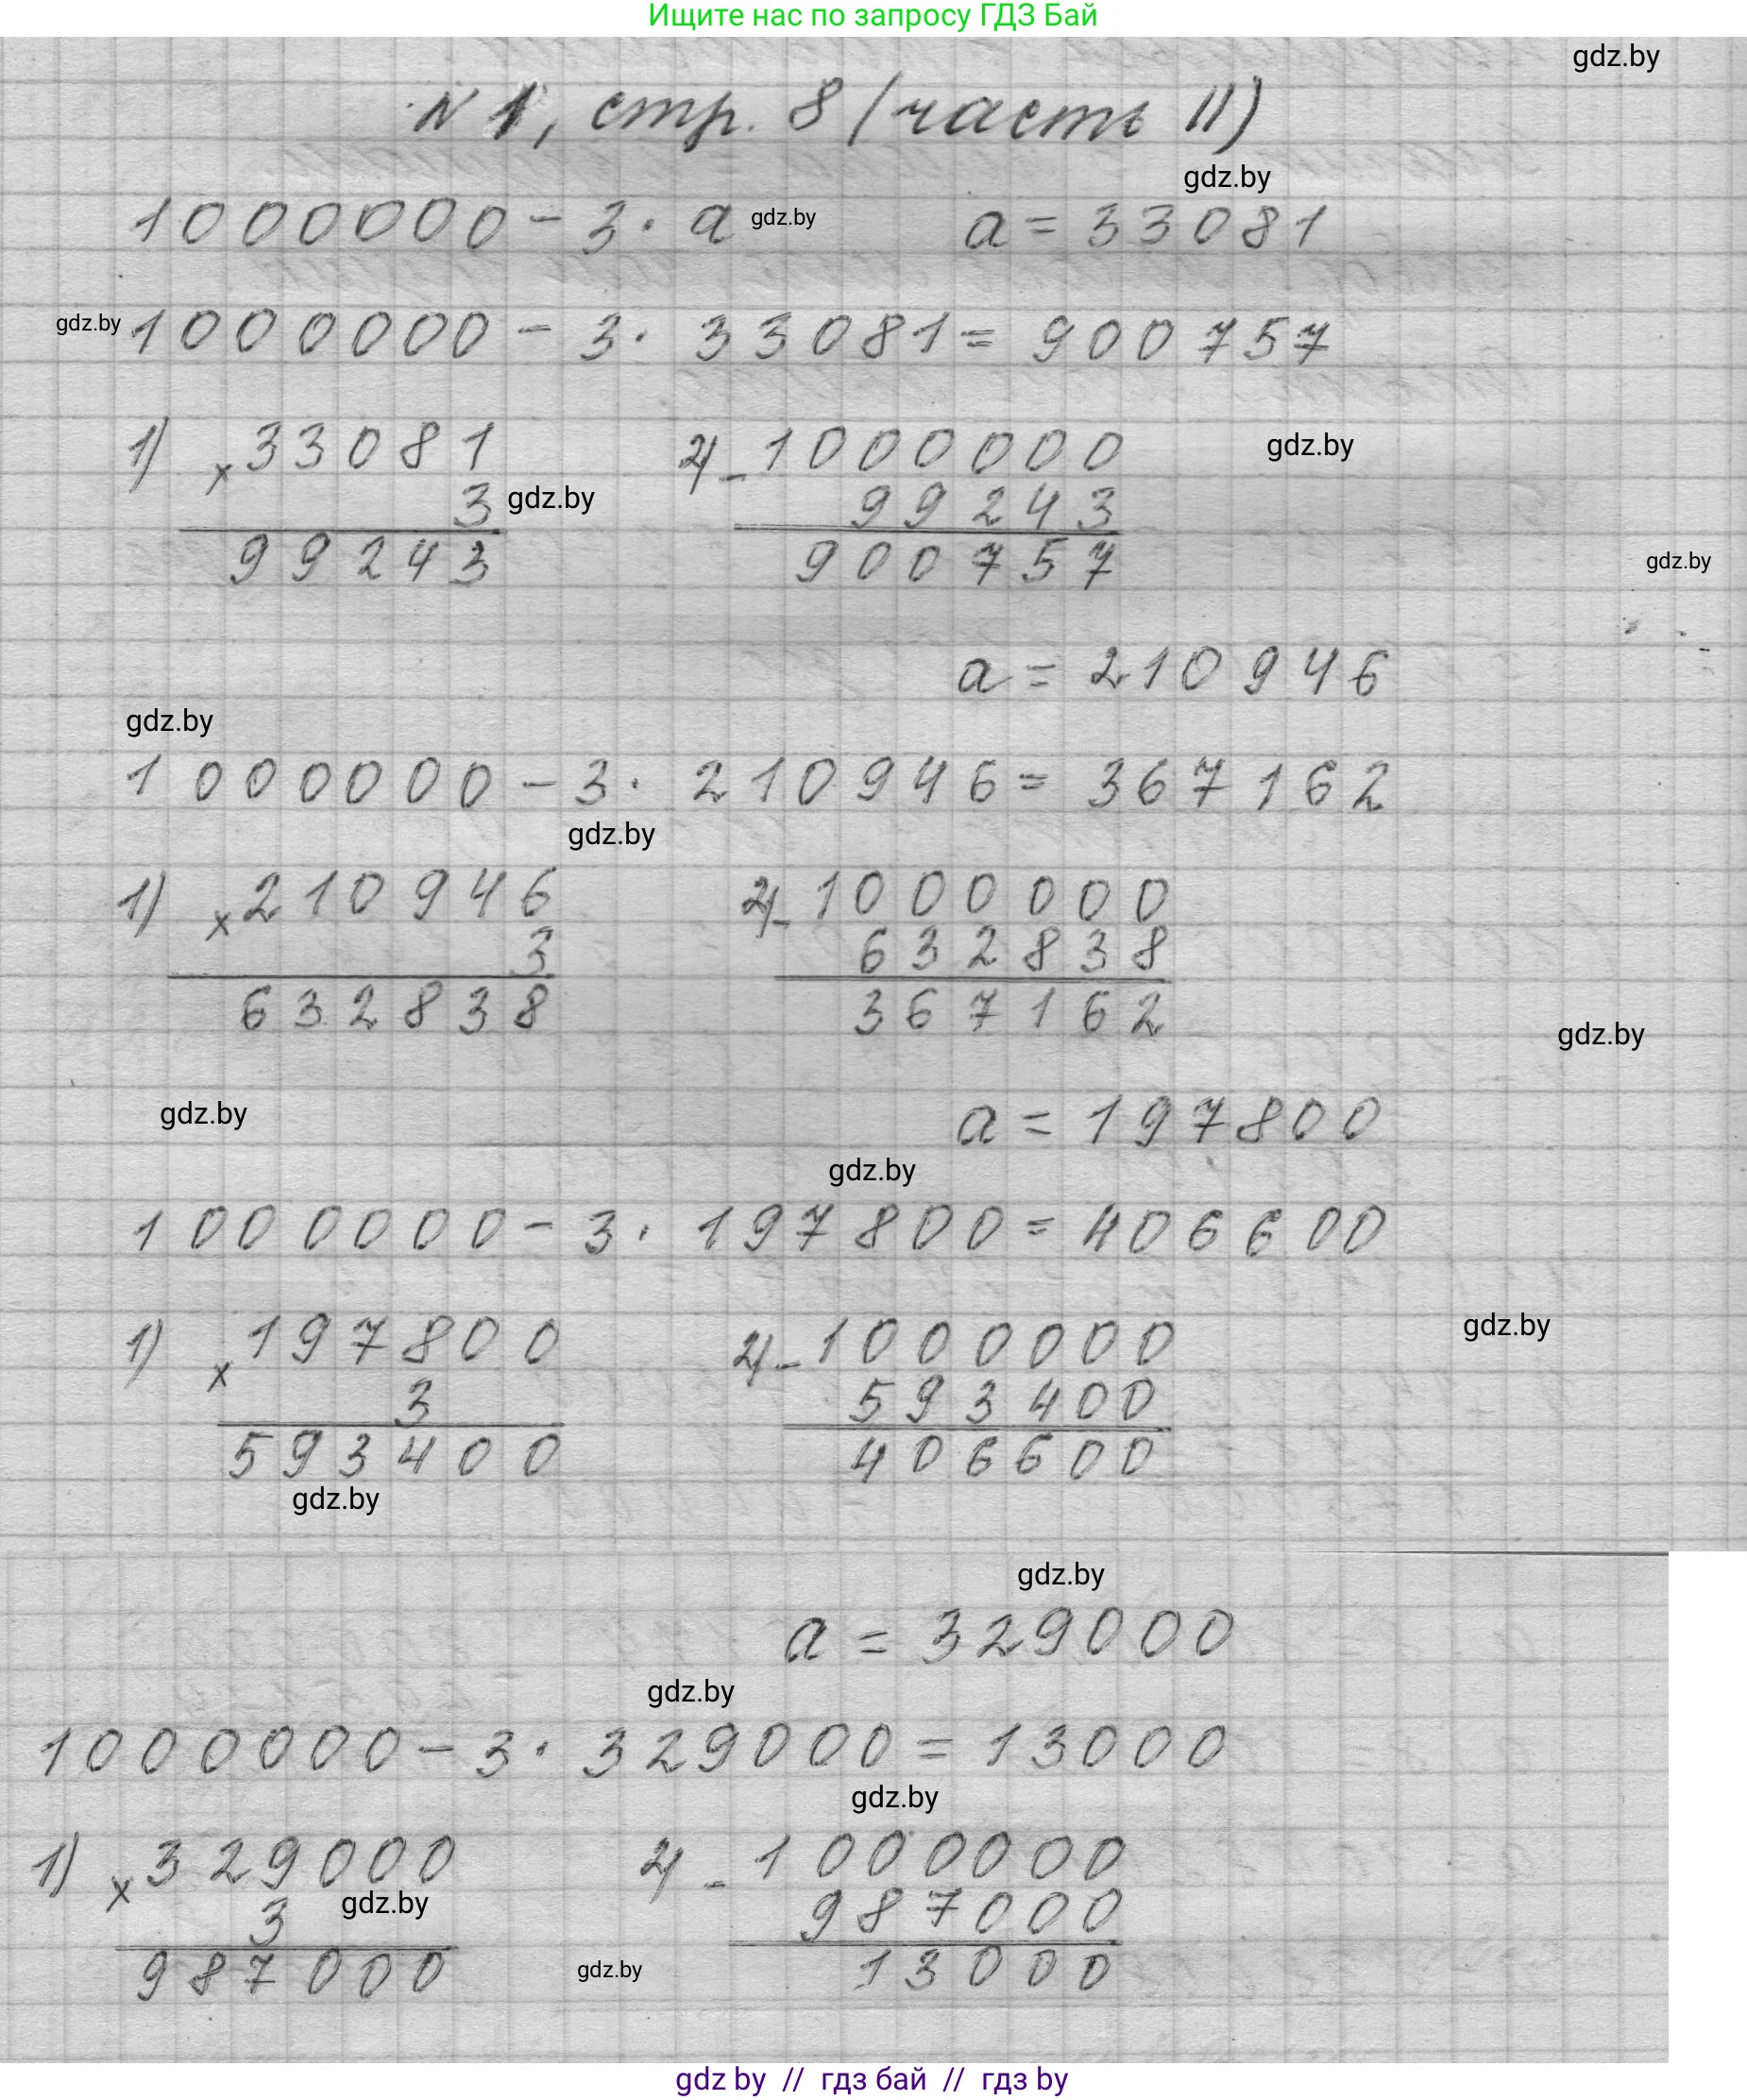 Ищите нас по запросу ГДЗ Бай
gdz.by
N 1, стр. 8 (часть II)
gdz.by
1000000 - 3 · a gdz.by a = 33081
gdz.by 1000000 - 3 · 33081 = 900757
1) × 33081 2) - 1000000 gdz.by
3 gdz.by 99243
99243 900757
gdz.by
a = 210946
gdz.by
1000000 - 3 · 210946 = 367162
gdz.by
1) × 210946 2) - 1000000
3 632838
632838 367162
gdz.by
gdz.by a = 197800
gdz.by
1000000 - 3 · 197800 = 406600
1) × 197800 2) - 1000000 gdz.by
3 593400
593400 406600
gdz.by
gdz.by
a = 329000
gdz.by
1000000 - 3 · 329000 = 13000
gdz.by
1) × 329000 2) - 1000000
3 gdz.by 987000
987000 gdz.by 13000
gdz by // гдз бай // гдз by